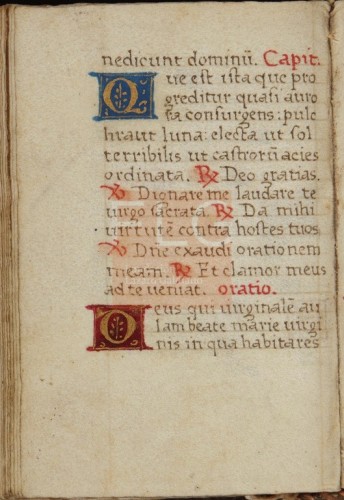 nedicunt dominū. Capit.
Que est ista que pro
greditur quasi auro
ra consurgens: pulc
hra ut luna: electa ut sol
terribilis ut castrorū acies
ordinata. ℟ Deo gratias.
℣ Dignare me laudare te
virgo sacrata. ℟ Da mihi
virtutē contra hostes tuos
℣ Dñe exaudi orationem
meam. ℟ Et clamor meus
ad te veniat. oratio.
Deus qui virginalē au
lam beate marie virgi
nis in qua habitares